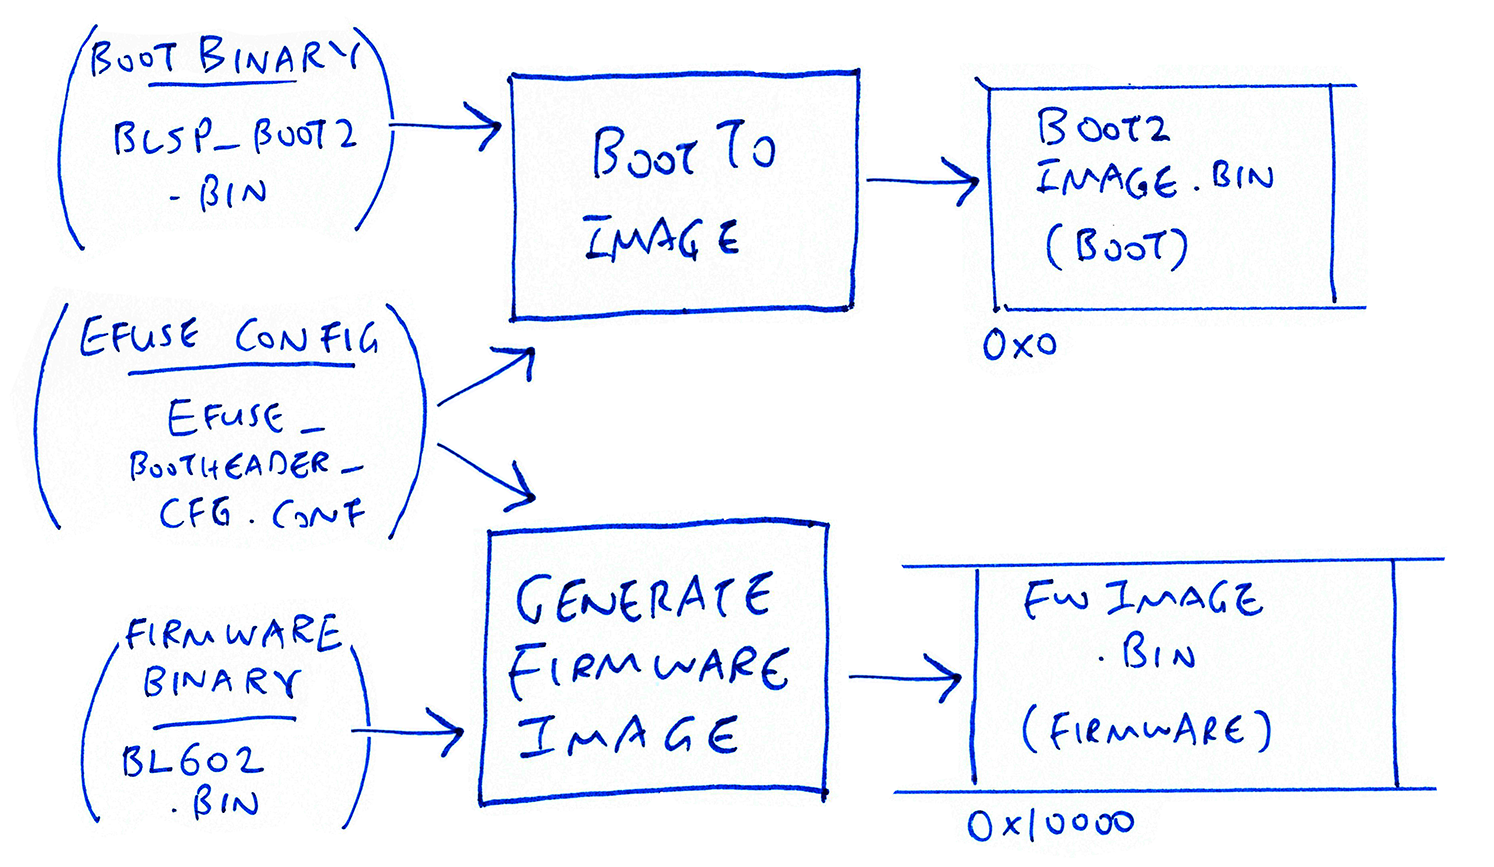 BOOT BINARY
BLSP_BOOT2
.BIN
BOOT TO
IMAGE
BOOT2
IMAGE.BIN
(BOOT)
0x0
EFUSE CONFIG
EFUSE_
BOOTHEADER_
CFG.CONF
FIRMWARE
BINARY
BL602
.BIN
GENERATE
FIRMWARE
IMAGE
FW IMAGE
.BIN
(FIRMWARE)
0x10000